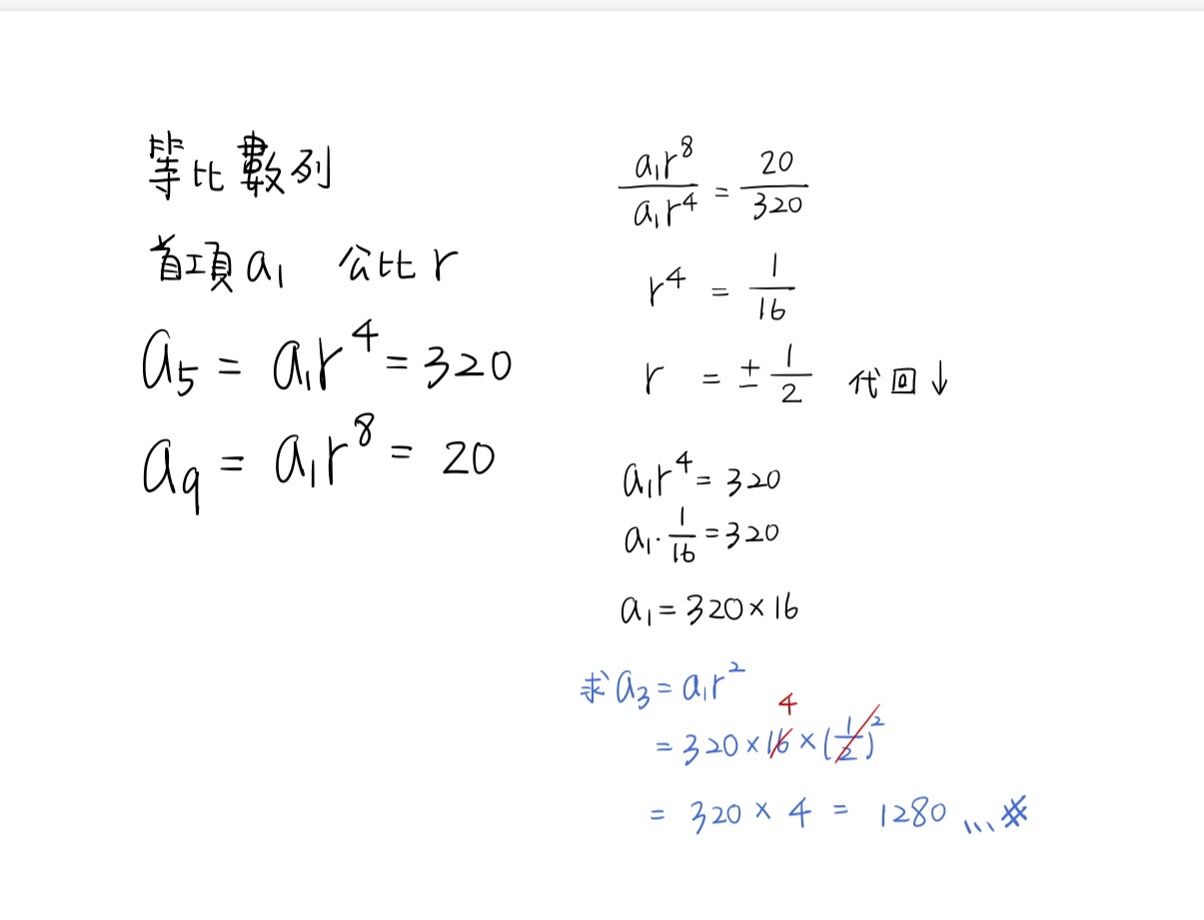 等比數列
首項 a₁ 公比 r
a₅ = a₁r⁴ = 320
a₉ = a₁r⁸ = 20
a₁r⁸/a₁r⁴ = 20/320
r⁴ = 1/16
r = ± 1/2 代回↓
a₁r⁴ = 320
a₁·1/16 = 320
a₁ = 320×16
求 a₃ = a₁r²
4
= 320×16×(1/2)²
= 320 × 4 = 1280 ...#